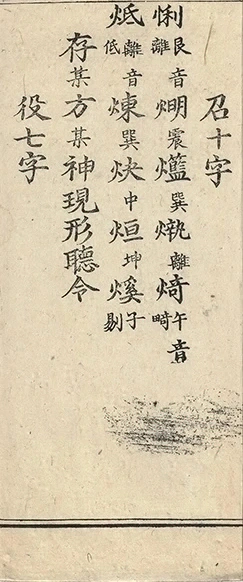 召十字
悧離艮音焩震爁巽㷍離㷇畸午音
炻低離音煉巽炔中烜坤㷎剔子
存某方某神現形聽令
役七字